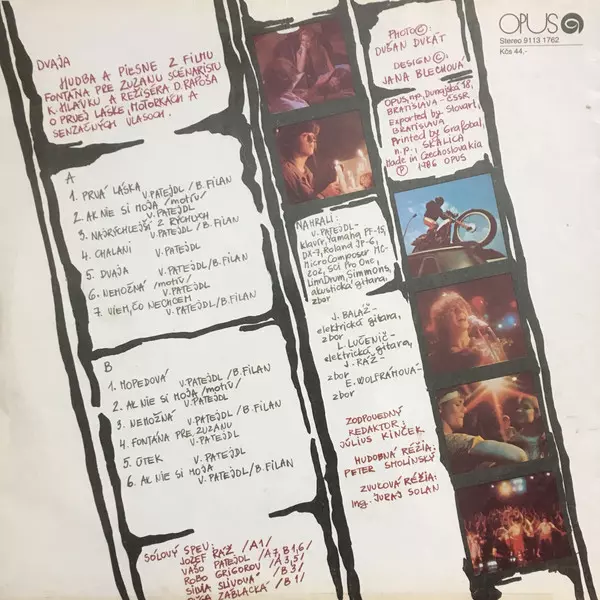 OPUS
Stereo 9113 1762
Kčs 44,-
PHOTO ©:
DUŠAN DUKÁT
DESIGN ©:
JANA BLECHOVÁ
OPUS, n.p., Dunajská 18,
BRATISLAVA - ČSSR
Exported by Slovart,
BRATISLAVA
Printed by Grafobal,
n.p., SKALICA
Made in Czechoslovakia
Ⓟ 1986 OPUS
DVAJA
HUDBA A PIESNE Z FILMU
FONTÁNA PRE ZUZANU SCENÁRISTU
K. HLAVKU A REŽISÉRA D. RAPOŠA
O PRVEJ LÁSKE, MOTORKÁCH A
SENZAČNÝCH VLASOCH.
A
1. PRVÁ LÁSKA V. PATEJDL / B. FILAN
2. AK NIE SI MOJA /motív/
V. PATEJDL
3. NAJRÝCHLEJŠÍ Z RÝCHLYCH
V. PATEJDL / B. FILAN
4. CHALANI V. PATEJDL
5. DVAJA V. PATEJDL / B. FILAN
6. NEMOŽNÁ /motív/
V. PATEJDL
7. VIEM, ČO NECHCEM
V. PATEJDL / B. FILAN
B
1. MOPEDOVÁ V. PATEJDL / B. FILAN
2. AK NIE SI MOJA /motív/
V. PATEJDL
3. NEMOŽNÁ V. PATEJDL / B. FILAN
4. FONTÁNA PRE ZUZANU
V. PATEJDL
5. ÚTEK V. PATEJDL
6. AK NIE SI MOJA
V. PATEJDL / B. FILAN
SÓLOVÝ SPEV:
JOZEF RÁŽ /A1/
VAŠO PATEJDL /A7, B1,6/
ROBO GRIGOROV /A3,5/
SILVIA SLIVOVÁ /B3/
ZÁBLACKÁ /B1/
NAHRALI:
V. PATEJDL -
klavír, Yamaha PF-15,
DX-7, Roland JP-6,
MicroComposer MC-
202, SCI Pro One,
LinnDrum, Simmons,
akustická gitara,
zbor
J. BALÁŽ -
elektrická gitara,
zbor
L. LUČENIČ -
elektrická gitara,
J. RÁŽ -
zbor
E. WOLFRAMOVÁ -
zbor
ZODPOVEDNÝ
REDAKTOR:
JÚLIUS KINČEK
HUDOBNÁ RÉŽIA:
PETER SMOLINSKÝ
ZVUKOVÁ RÉŽIA:
Ing. JURAJ SOLAN